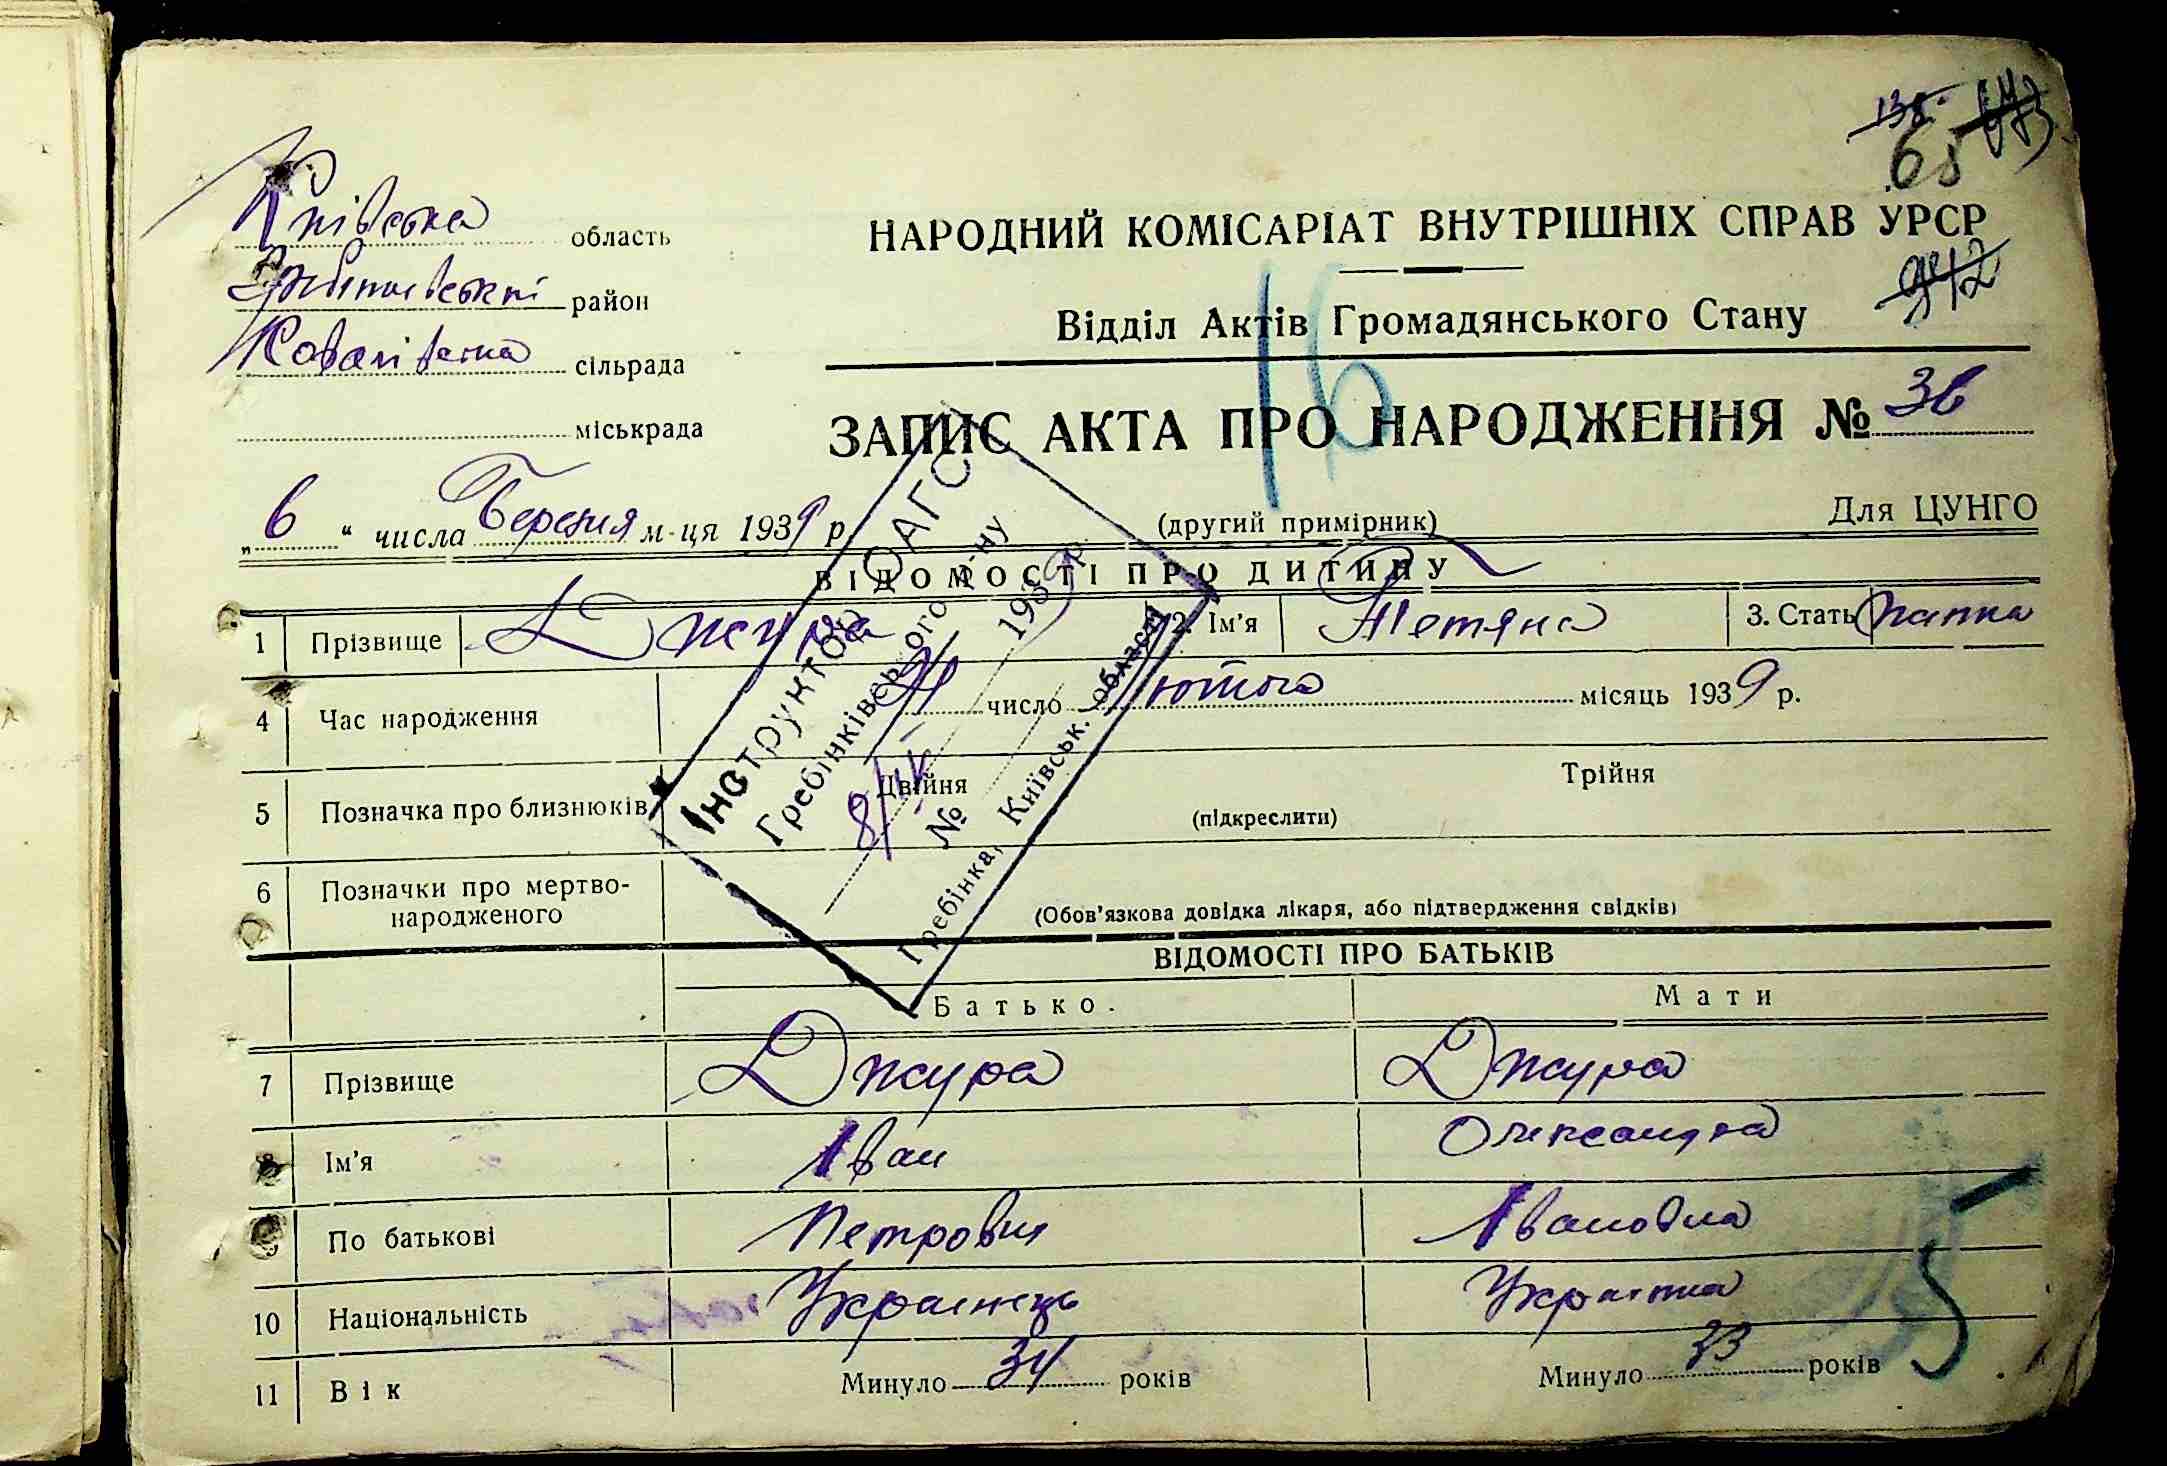 138
65
Київська область
НАРОДНИЙ КОМІСАРІАТ ВНУТРІШНІХ СПРАВ УРСР
район
Відділ Актів Громадянського Стану
Ковалівська сільрада
міськрада
ЗАПИС АКТА ПРО НАРОДЖЕННЯ № 36
16
„6“ числа Березня м-ця 1939 р.
(другий примірник)
Для ЦУНГО
ВІДОМОСТІ ПРО ДИТИНУ
1 Прізвище Джура 2. Ім'я Тетяна 3. Стать
4 Час народження число Лютого місяць 1939 р.
5 Позначка про близнюків Двійня (підкреслити) Трійня
6 Позначки про мертво-
народженого
(Обов'язкова довідка лікаря, або підтвердження свідків)
Інструктор ОАГС
Гребінківського р-ну
8/IV 1939 р.
№
Гребінка, Київськ. області
ВІДОМОСТІ ПРО БАТЬКІВ
Батько. Мати
7 Прізвище Джура Джура
8 Ім'я Іван Олександра
9 По батькові Петрович Івановна
10 Національність Українець Українка
11 Вік Минуло 34 років Минуло 33 років